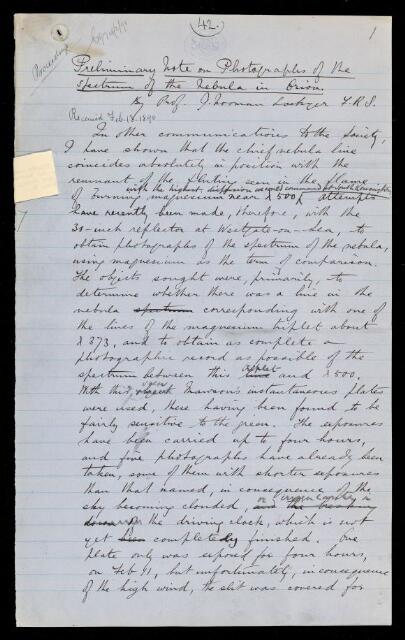 (42.)
1
Preliminary Note on Photographs of the
Spectrum of the Nebula in Orion.
By Prof. J. Norman Lockyer F.R.S.
Received Feb. 13. 1890
In other communications to the Society,
I have shown that the chief nebula line
coincides absolutely in position with the
remnant of the fluting seen in the flame
with the highest dispersion
of burning magnesium near λ 500, attempts
have recently been made, therefore, with the
30-inch reflector at Westgate-on-Sea, to
obtain photographs of the spectrum of the nebula,
using magnesium as the term of comparison.
The objects sought were, primarily, to
determine whether there was a line in the
nebula spectrum corresponding with one of
the lines of the magnesium triplet about
λ 373, and to obtain as complete a
photographic record as possible of the
spectrum between this line triplet and λ 500.
With this object Mawson's instantaneous plates
were used, these having been found to be
fairly sensitive to the green. The exposures
have been carried up to four hours,
and five photographs have already been
taken, some of them with shorter exposures
than that named, in consequence of the
sky becoming clouded, and the breaking
or irregularity in
down of the driving clock, which is not
yet been completely finished. One
plate only was exposed for four hours,
on Feb 11, but unfortunately, in consequence
of the high wind, the slit was covered for